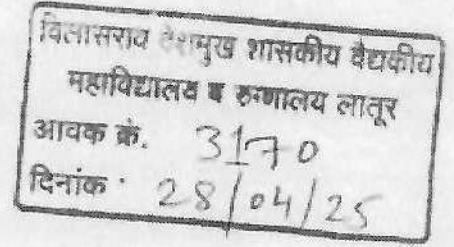 विलासराव देशमुख शासकीय वैद्यकीय
महाविद्यालय व रुग्णालय लातूर
आवक क्रं. 3170
दिनांक · 28/04/25